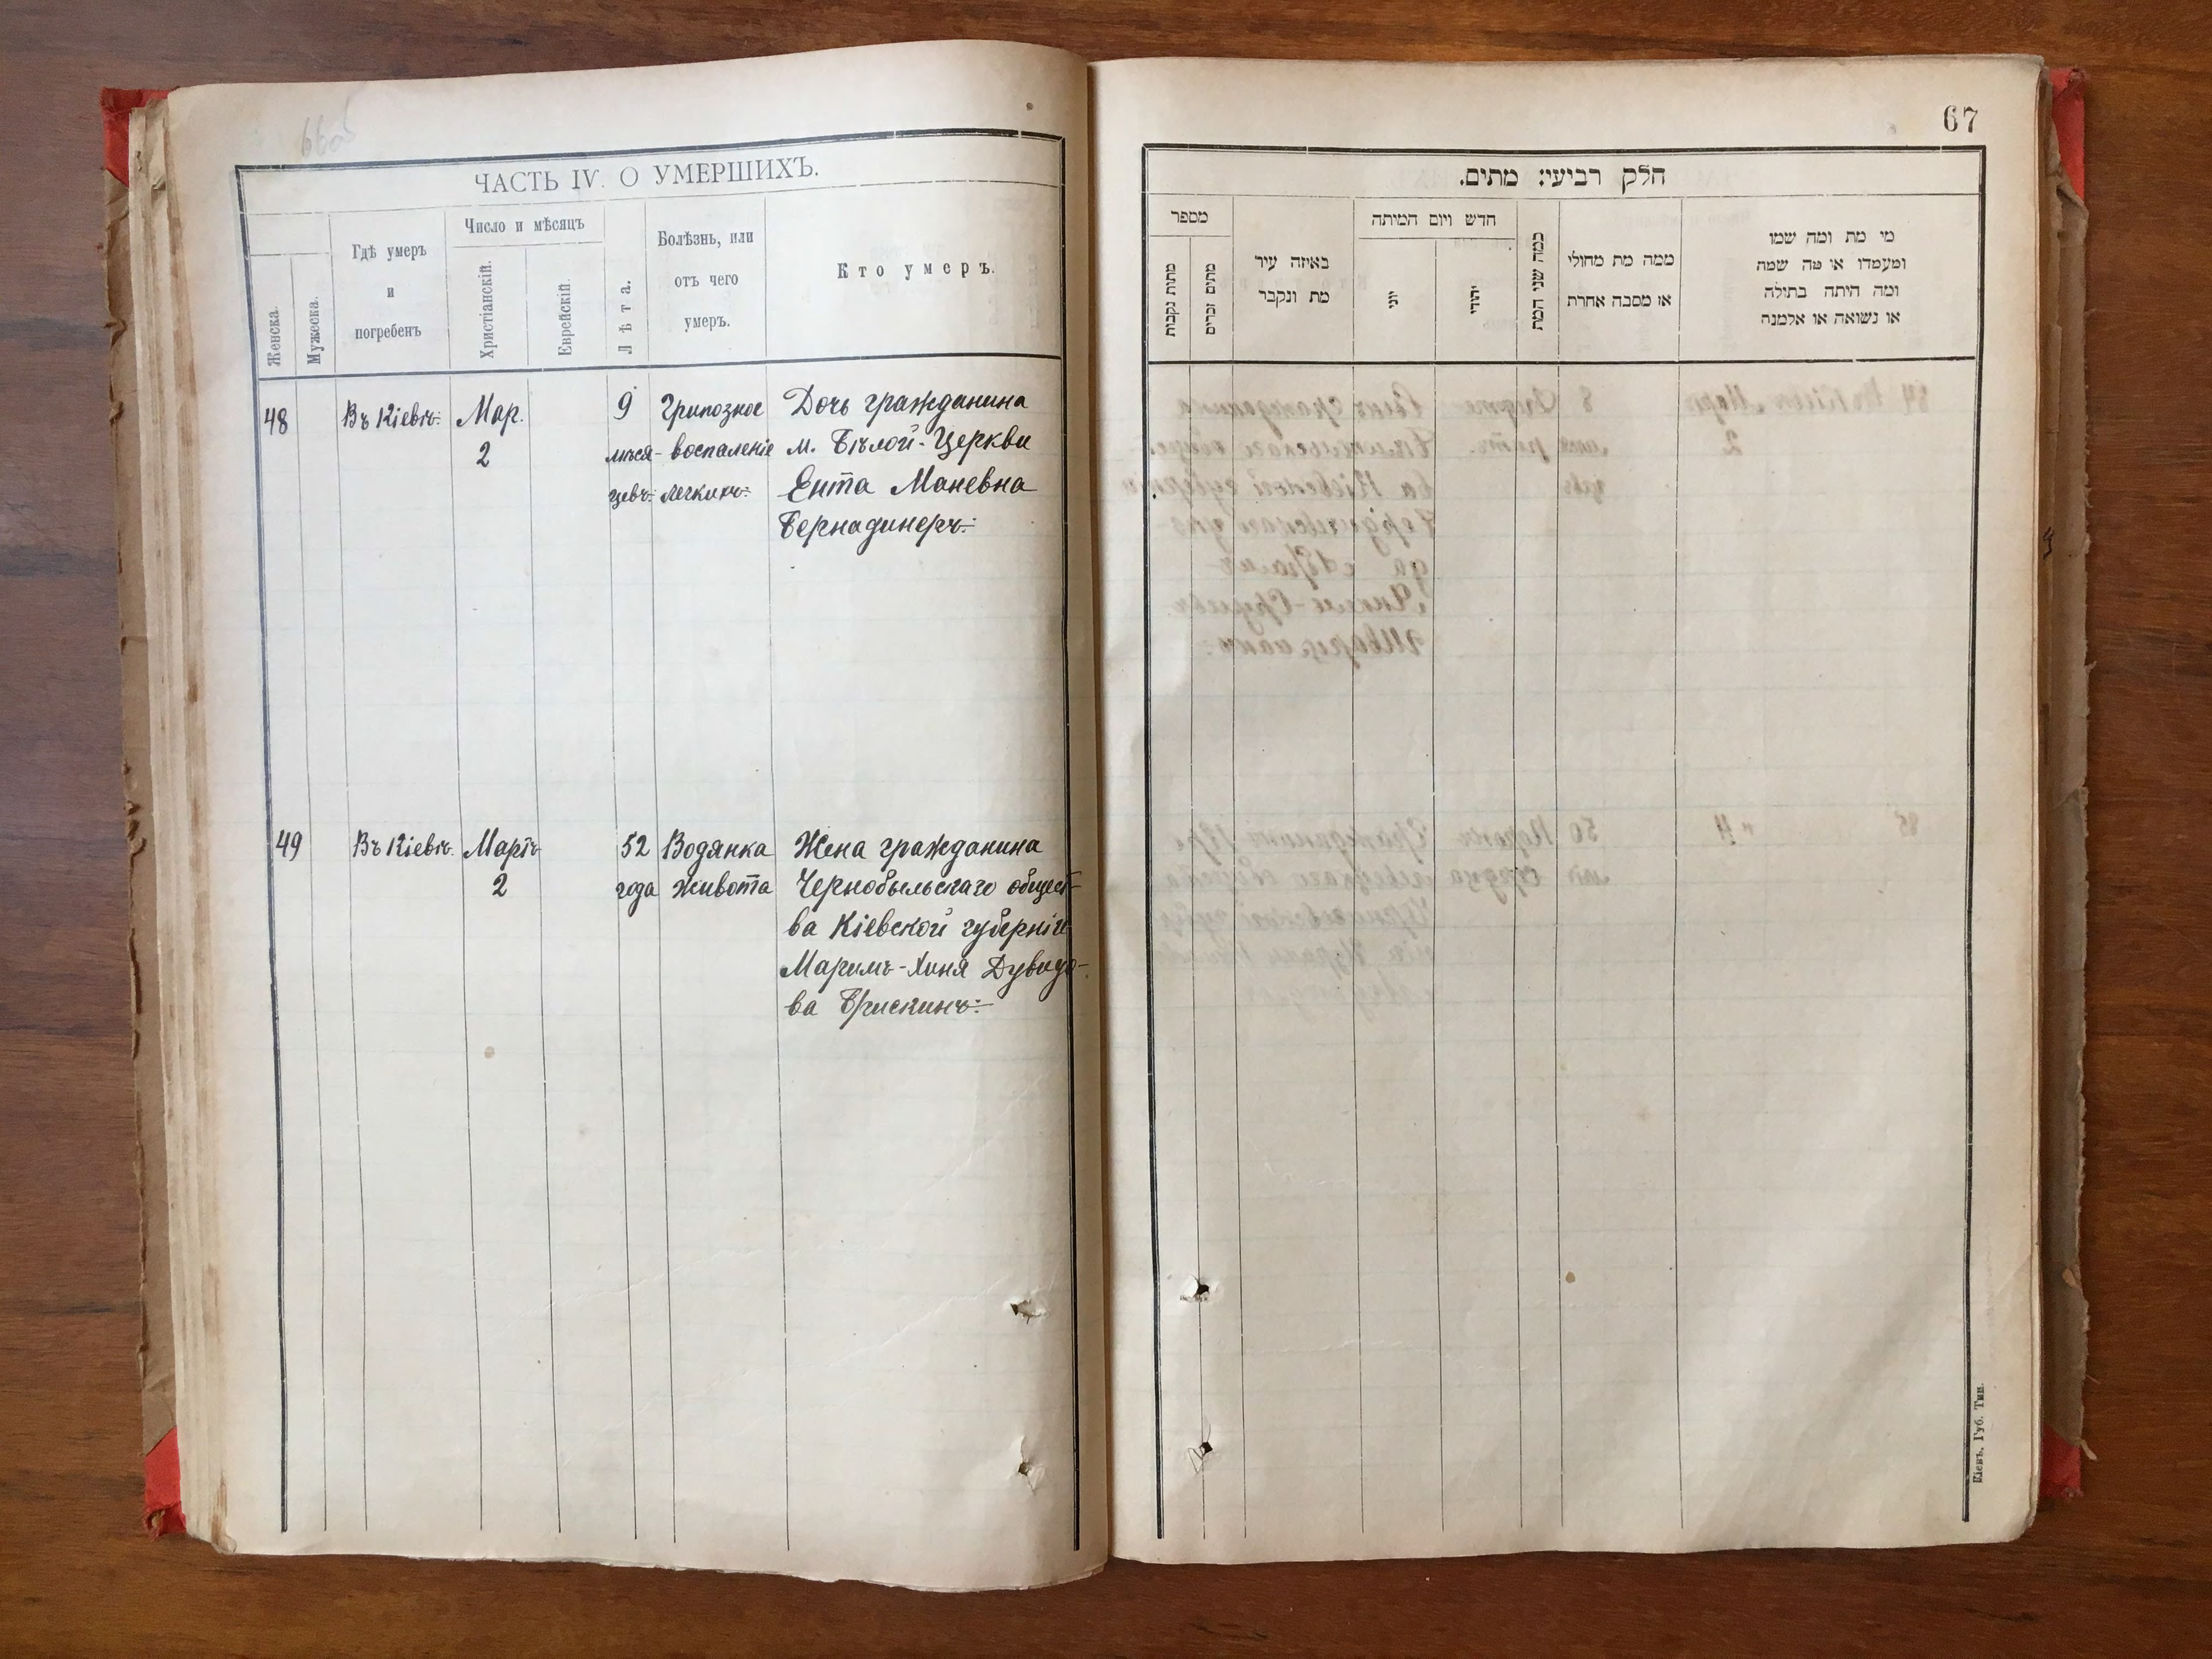 ЧАСТЬ IV. О УМЕРШИХЪ.
Женска.
Мужеска.
Гдѣ умеръ
и
погребенъ
Число и мѣсяцъ
Христіанскій.
Еврейскій.
Лѣта.
Болѣзнь, или
отъ чего
умеръ.
Кто умеръ.
48
Въ Кіевѣ
Мар.
2
9
мѣся-
цевъ
Грипозное
воспаленіе
легкихъ
Дочь гражданина
м. Бѣлой-Церкви
Ента Маневна
Бернадинеръ
49
Въ Кіевѣ
Мартъ
2
52
года
Водянка
живота
Жена гражданина
Чернобыльскаго общест-
ва Кіевской губерніи
Маримъ-Хиня Дувидо-
ва Брискинъ
67
חלק רביעי: מתים.
מספר
מתות נקבות
מתים זכרים
באיזה עיר
מת ונקבר
חדש ויום המיתה
יוני
יהודי
כמה שני המת
ממה מת מחולי
או מסבה אחרת
מי מת ומה שמו
ומעמדו או מה שמה
ומה היתה בתולה
או נשואה או אלמנה
Кіевъ, Губ. Тип.